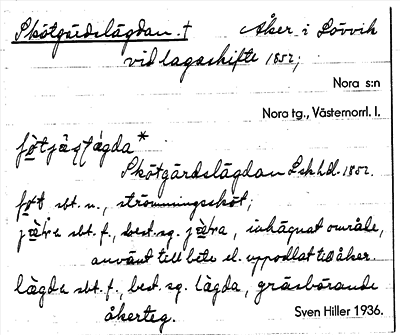 Skötgärdslägdan. † Åker i Lövvik
vid lagaskifte 1852;
Nora s:n
Nora tg., Västernorrl. l.
Skötgärdslägdan Lskhdl. 1852.
sbt. n., strömmingssköt;
sbt. f., best. sg. , inhägnat område,
använt till bete el. uppodlat till åker.
lägda sbt. f., best. sg. lägda, gräsbärande
åkerteg.
Sven Hiller 1936.